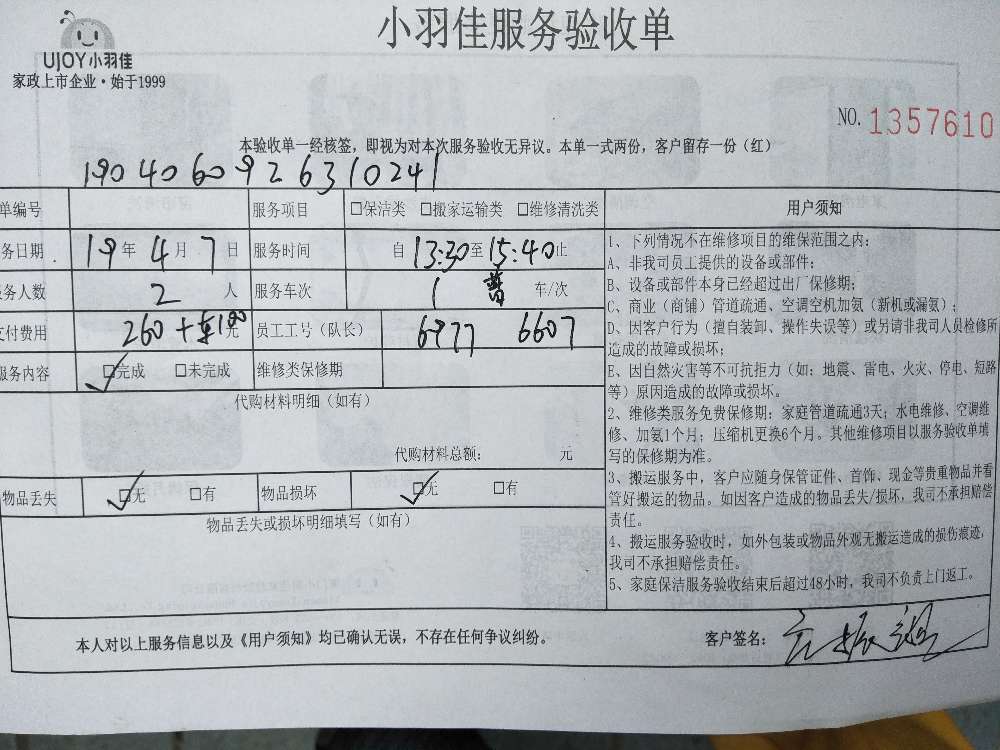 小羽佳服务验收单
UJOY小羽佳
家政上市企业·始于1999
NO. 1357610
本验收单一经核签，即视为对本次服务验收无异议。本单一式两份，客户留存一份（红）
1904060926310241
单编号 服务项目 □保洁类 □搬家运输类 □维修清洗类
务日期 19年 4月 7日 服务时间 自 13:30至 15:40止
服务人数 2 人 服务车次 1 普 车/次
支付费用 260+车100元 员工工号（队长） 6977 6607
服务内容 ☑完成 □未完成 维修类保修期
代购材料明细（如有）
代购材料总额： 元
物品丢失 ☑无 □有 物品损坏 ☑无 □有
物品丢失或损坏明细填写（如有）
用户须知
1、下列情况不在维修项目的维保范围之内：
A、非我司员工提供的设备或部件；
B、设备或部件本身已经超过出厂保修期；
C、商业（商铺）管道疏通、空调空机加氨（新机或漏氨）；
D、因客户行为（擅自装卸、操作失误等）或另请非我司人员检修所
造成的故障或损坏；
E、因自然灾害等不可抗拒力（如：地震、雷电、火灾、停电、短路
等）原因造成的故障或损坏。
2、维修类服务免费保修期：家庭管道疏通3天；水电维修、空调维
修、加氨1个月；压缩机更换6个月。其他维修项目以服务验收单填
写的保修期为准。
3、搬运服务中，客户应随身保管证件、首饰、现金等贵重物品并看
管好搬运的物品。如因客户造成的物品丢失/损坏，我司不承担赔偿
责任。
4、搬运服务验收时，如外包装或物品外观无搬运造成的损伤痕迹，
我司不承担赔偿责任。
5、家庭保洁服务验收结束后超过48小时，我司不负责上门返工。
本人对以上服务信息以及《用户须知》均已确认无误，不存在任何争议纠纷。 客户签名：